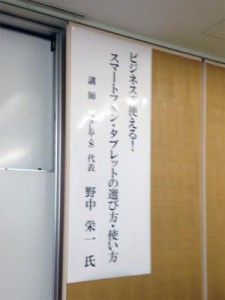 ビジネスで使える!
スマートフォン・タブレットの選び方・使い方
講師 代表 野中 栄一 氏